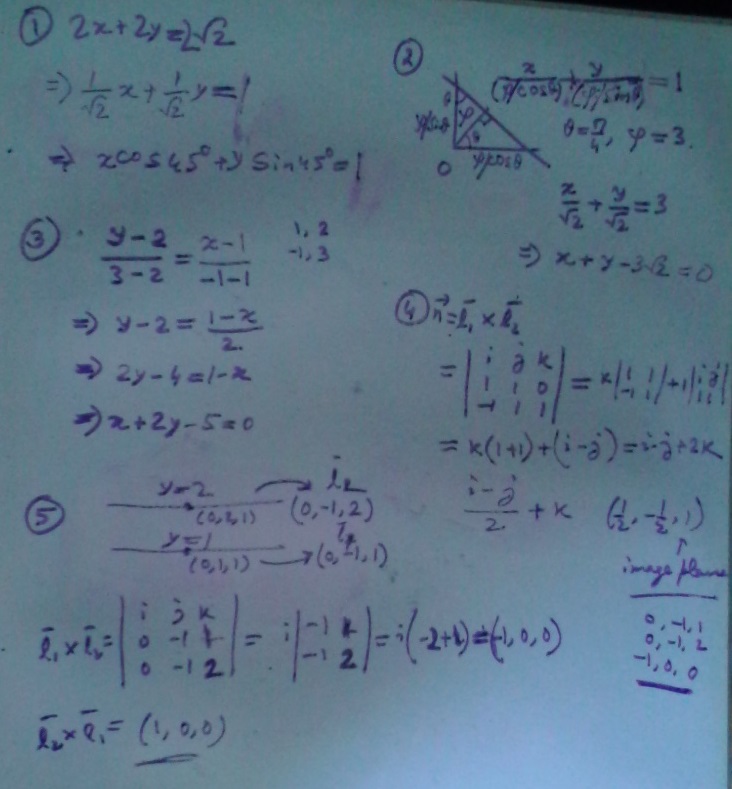 ① 2x+2y=2√2
⇒ 1/√2 x + 1/√2 y = 1
⇒ x cos 45° + y sin 45° = 1
②
x/(P/cosθ) + y/(P/sinθ) = 1
θ = π/4, φ = 3.
θ φ θ
O φ/cosθ
x/√2 + y/√2 = 3
⇒ x+y-3√2 = 0
③ y-2/3-2 = x-1/-1-1
1, 2
-1, 3
⇒ y-2 = 1-x/2
⇒ 2y-4 = 1-x
⇒ x+2y-5=0
④ n = l₁ × l₂
= | i j k | 1 1 0 | -1 1 1 | = k | 1 1 | -1 1 | + 1 | i j | 1 1 |
= k(1+1)+(i-j) = i-j+2k
i-j/2 + k (1/2, -1/2, 1)
↑
image plane
⑤ y=2 l₂
(0,2,1) (0,-1,2)
y=1 l₁
(0,1,1) → (0,-1,1)
l₁×l₂ = | i j k | 0 -1 1 | 0 -1 2 | = i | -1 1 | -1 2 | = i(-2+1) = (-1,0,0)
0, -1, 1
0, -1, 2
-1, 0, 0
l₂×l₁ = (1,0,0)